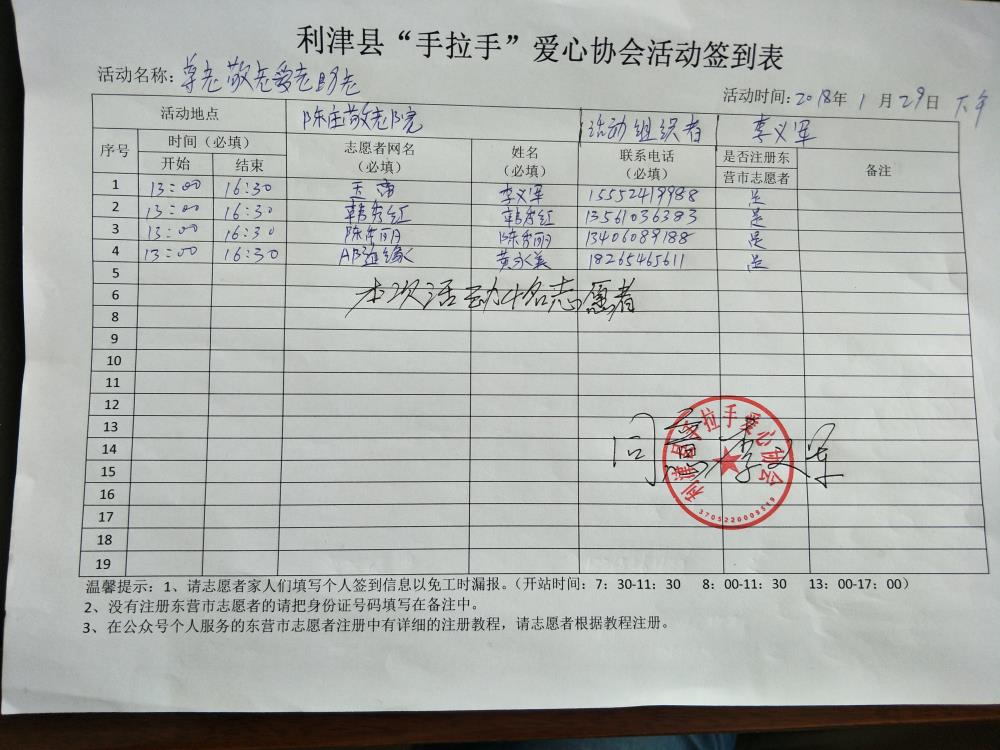 利津县“手拉手”爱心协会活动签到表
活动名称：尊老敬老爱老助老
活动时间：2018年 1月29日 下午
活动地点 陈庄敬老院 活动组织者 李义军
序号 时间（必填） 志愿者网名（必填） 姓名（必填） 联系电话（必填） 是否注册东营市志愿者 备注
开始 结束
1 13:00 16:30 李义军 15552419988 是
2 13:00 16:30 韩秀红 韩秀红 13561036383 是
3 13:00 16:30 陈秀丽 陈秀丽 13406089188 是
4 13:00 16:30 AB型缘 黄永美 18265465611 是
5
本次活动4名志愿者
6
8
9
10
11
12
13
14
同意 李义军
利津县手拉手爱心协会
3705220009519
15
16
17
18
19
温馨提示：1、请志愿者家人们填写个人签到信息以免工时漏报。（开站时间：7：30-11：30 8：00-11：30 13：00-17：00）
2、没有注册东营市志愿者的请把身份证号码填写在备注中。
3、在公众号个人服务的东营市志愿者注册中有详细的注册教程，请志愿者根据教程注册。